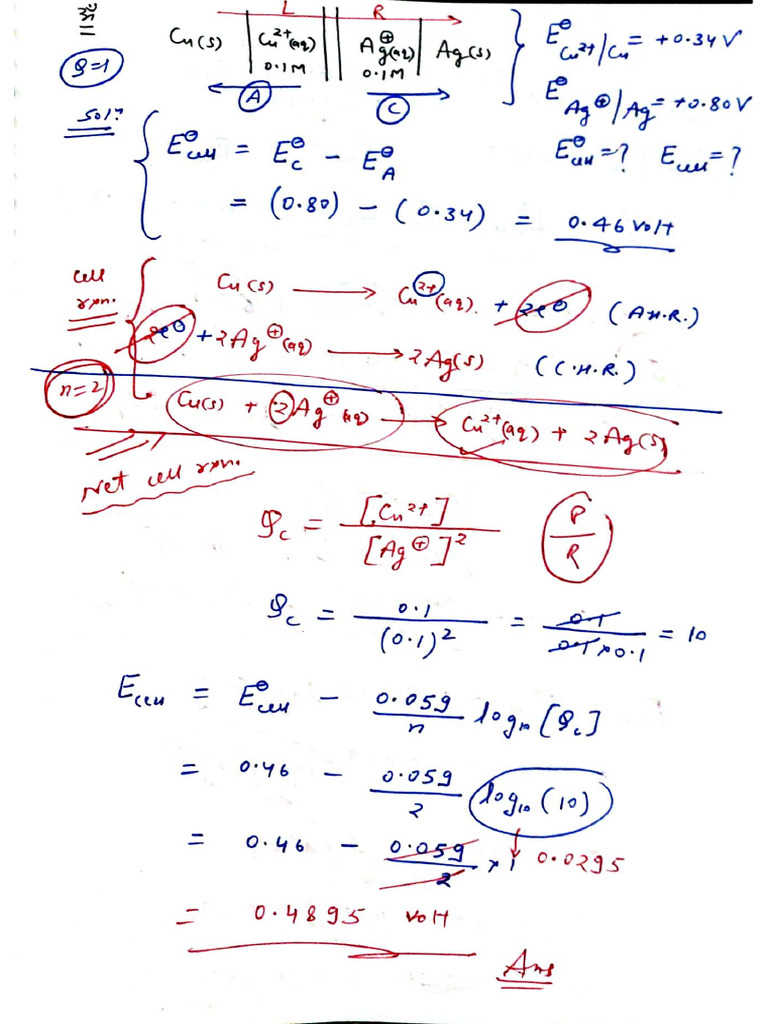 L R
Cu(s) | Cu²⁺(aq) 0.1M || Ag⊕(aq) 0.1M | Ag(s) } E⊖ Cu²⁺/Cu = +0.34V
Q=1
A C
E⊖ Ag⊕/Ag = +0.80V
Solⁿ
E⊖cell = E⊖C − E⊖A E⊖cell = ? Ecell = ?
= (0.80) − (0.34) = 0.46 volt
cell rxn.
Cu(s) ⟶ Cu²⁺(aq) + 2e⊖ (A.H.R.)
2e⊖ + 2Ag⊕(aq) ⟶ 2Ag(s) (C.H.R.)
n=2
Cu(s) + 2Ag⊕(aq) ⟶ Cu²⁺(aq) + 2Ag(s)
Net cell rxn.
Qc = [Cu²⁺] / [Ag⊕]² P/R
Qc = 0.1 / (0.1)² = 0.1 / 0.1×0.1 = 10
Ecell = E⊖cell − 0.059/n log₁₀ [Qc]
= 0.46 − 0.059/2 log₁₀ (10)
= 0.46 − 0.059/2 × 1 0.0295
= 0.4895 volt
Ans